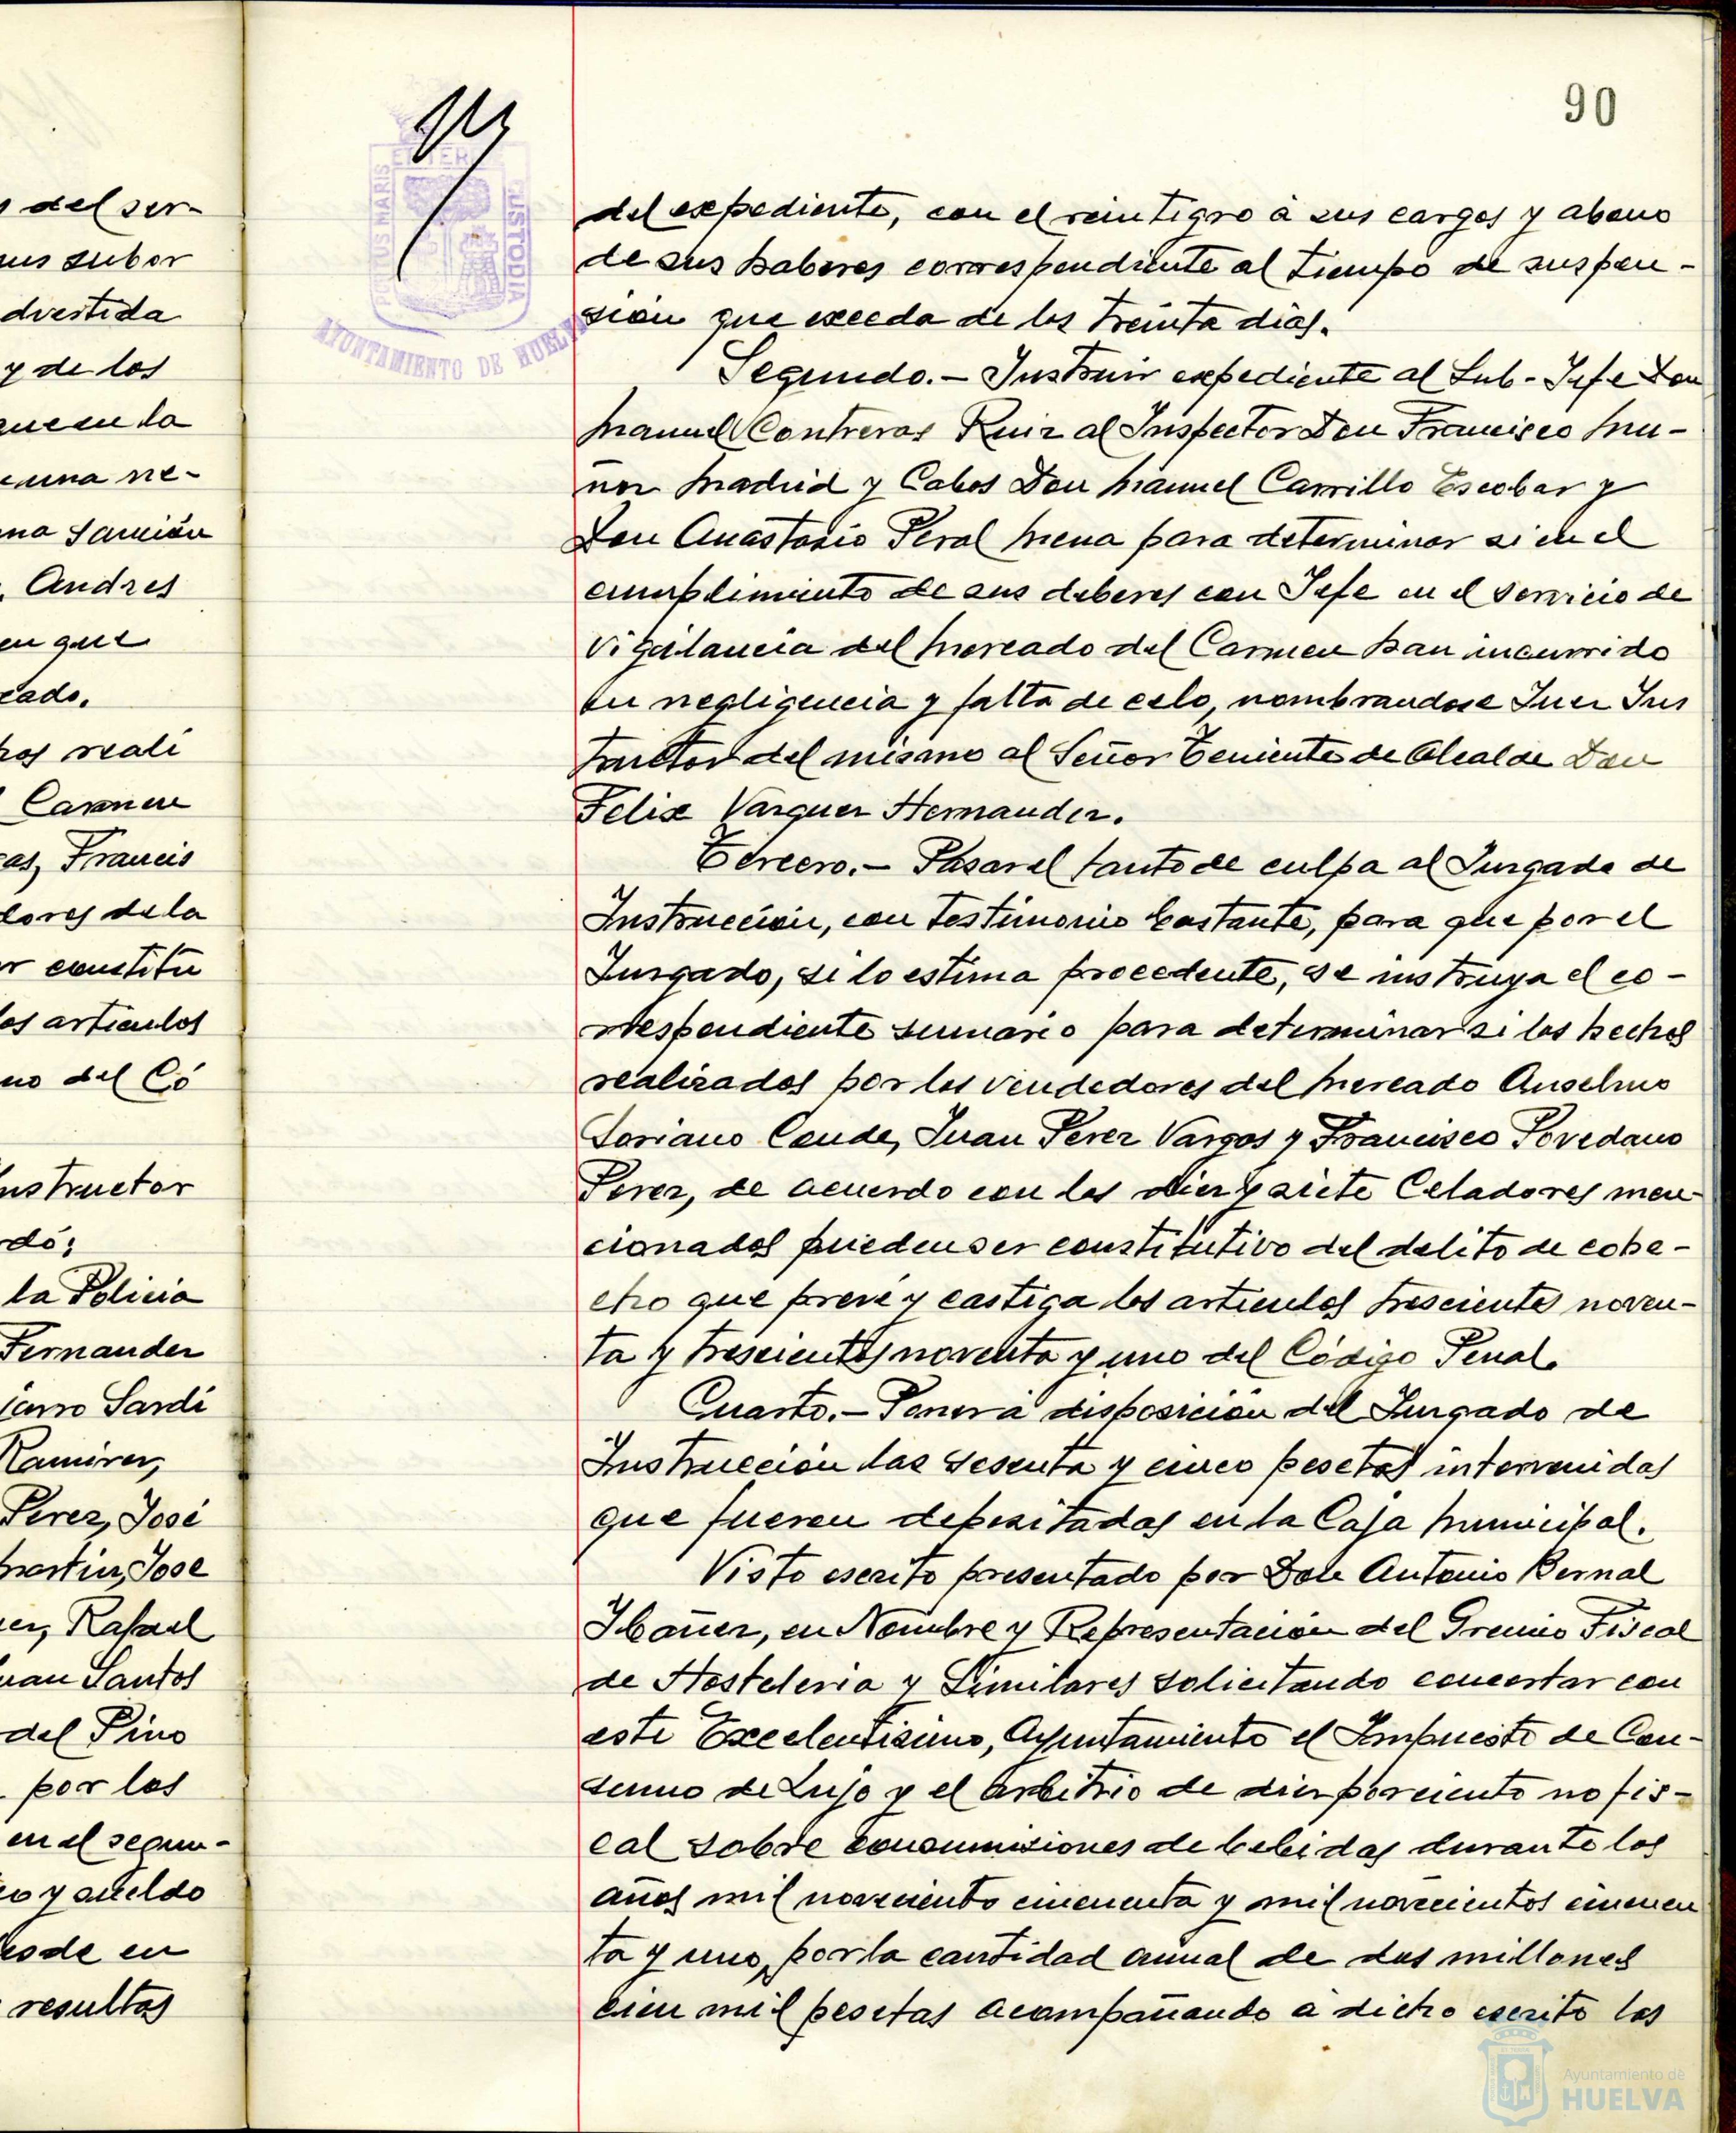 90
PORTUS MARIS
ET TERRE
CUSTODIA
AYUNTAMIENTO DE HUELVA
del ser-
sus subor
dvertida
y de los
que en la
una ne-
na sanción
Andres
en que
cado.
hos reali
Carmen
as, Francis
dores de la
r constitu
os artículos
no del Có
nstructor
rdó:
la Policia
Fernandez
Sardi
Ramirez,
Perez, José
Martin, Jose
ez, Rafael
uan Santos
del Pino
por los
en el segun-
o y sueldo
esde en
resultas
del expediente, con el reintigro á sus cargos y abono
de sus haberes correspondiente al tiempo de suspen-
sión que exceda de los treinta dias.
Segundo.- Instruir expediente al Sub-Jefe Don
Manuel Contreras Ruiz al Inspector Don Francisco Mu-
ñoz Madrid y Cabos Don Manuel Carrillo Escobar y
Don Anastasio Peral Mena para determinar si en el
cumplimiento de sus deberes con Jefe en el servicio de
vigilancia del Mercado del Carmen han incurrido
en negligencia y falta de celo, nombrandose Juez Ins
tructor del mismo al Señor Teniente de Alcalde Don
Felix Vazquez Hernandez.
Tercero.- Pasar el tanto de culpa al Juzgado de
Instrucción, con testimonio bastante, para que por el
Juzgado, si lo estima procedente, se instruya el co-
rrespendiente sumario para determinar si los hechos
realizados por los vendedores del Mercado Anselmo
Soriano Conde, Juan Perez Vargas y Francisco Povedano
Perez, de acuerdo con los diez y siete Celadores men-
cionados pueden ser constitutivo del delito de cohe-
cho que prevé y castiga los articulos trescientos noven-
ta y trescientos noventa y uno del Código Penal.
Cuarto.- Poner á disposición del Juzgado de
Instrucción las sesenta y cinco pesetas intervenidas
que fueron depositadas en la Caja Municipal.
Visto escrito presentado por Don Antonio Bernal
Ibañez, en Nombre y Representación del Gremio Fiscal
de Hosteleria y Similares solicitando concertar con
este Excelentisimo, Ayuntamiento el Impuesto de Con-
sumo de Lujo y el arbitrio de diez por ciento no fis-
cal sobre consumisiones de bebidas durante los
años mil noveciento cincuenta y mil novecientos cincuen
ta y uno, por la cantidad anual de dos millones
cien mil pesetas acompañando a dicho escrito los
Ayuntamiento de
HUELVA